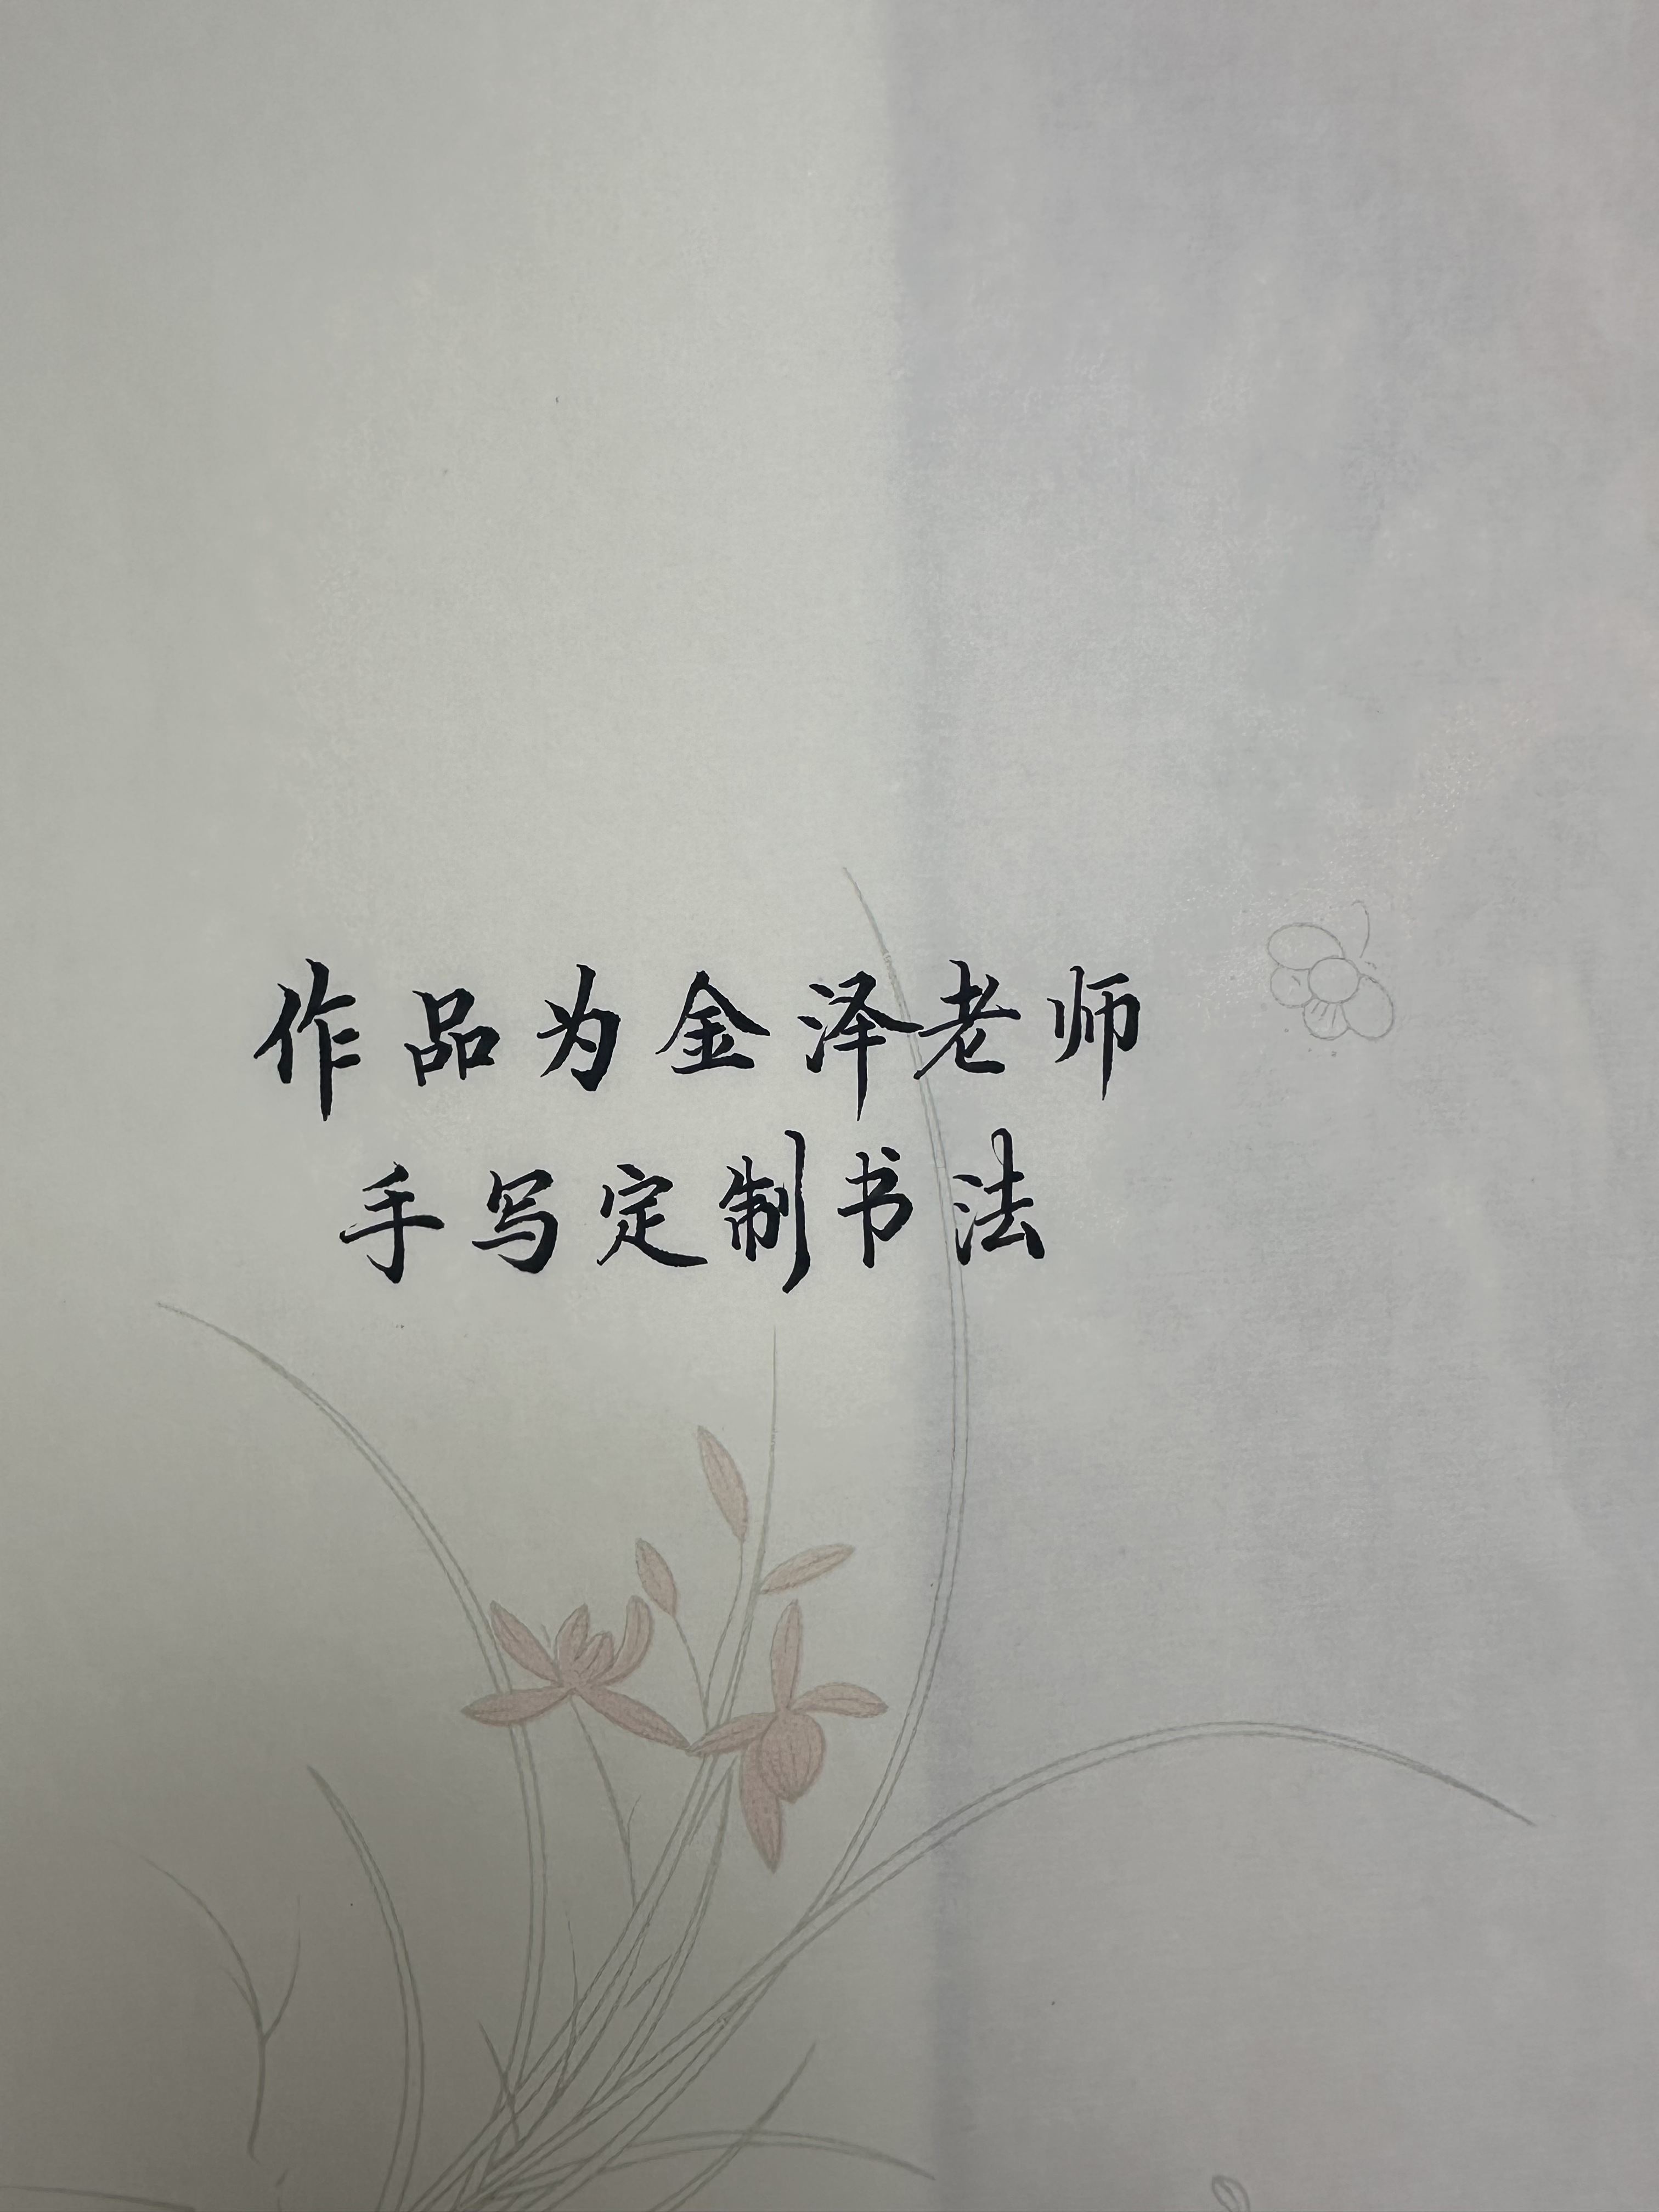 作品为金泽老师
手写定制书法